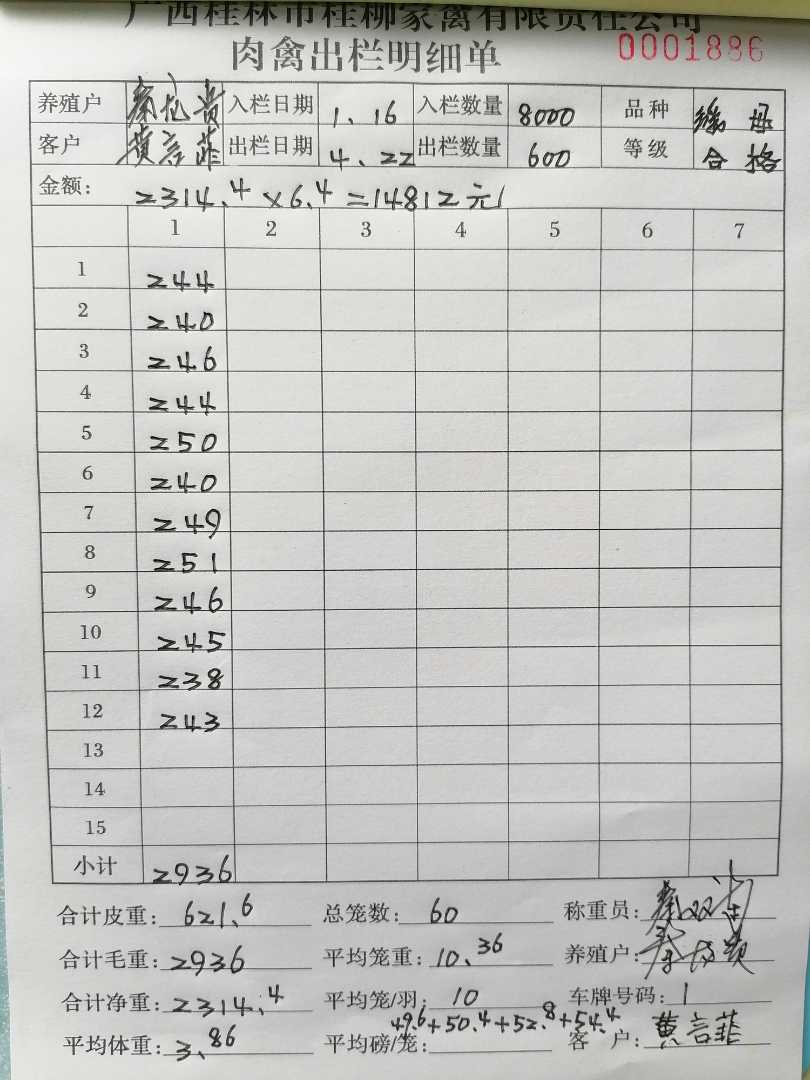 广西桂林市桂柳家禽有限责任公司
肉禽出栏明细单 0001886
养殖户 入栏日期 1.16 入栏数量 8000 品种
客户 黄言菲 出栏日期 4.22 出栏数量 600 等级 合格
金额: 2314.4×6.4=14812元
1 2 3 4 5 6 7
1 244
2 240
3 246
4 244
5 250
6 240
7 249
8 251
9 246
10 245
11 238
12 243
13
14
15
小计 2936
合计皮重: 621.6 总笼数: 60 称重员:
合计毛重: 2936 平均笼重: 10.36 养殖户:
合计净重: 2314.4 平均笼/羽: 10 车牌号码: 1
49.6+50.4+52.8+54.4
平均体重: 3.86 平均磅/笼: 客户: 黄言菲